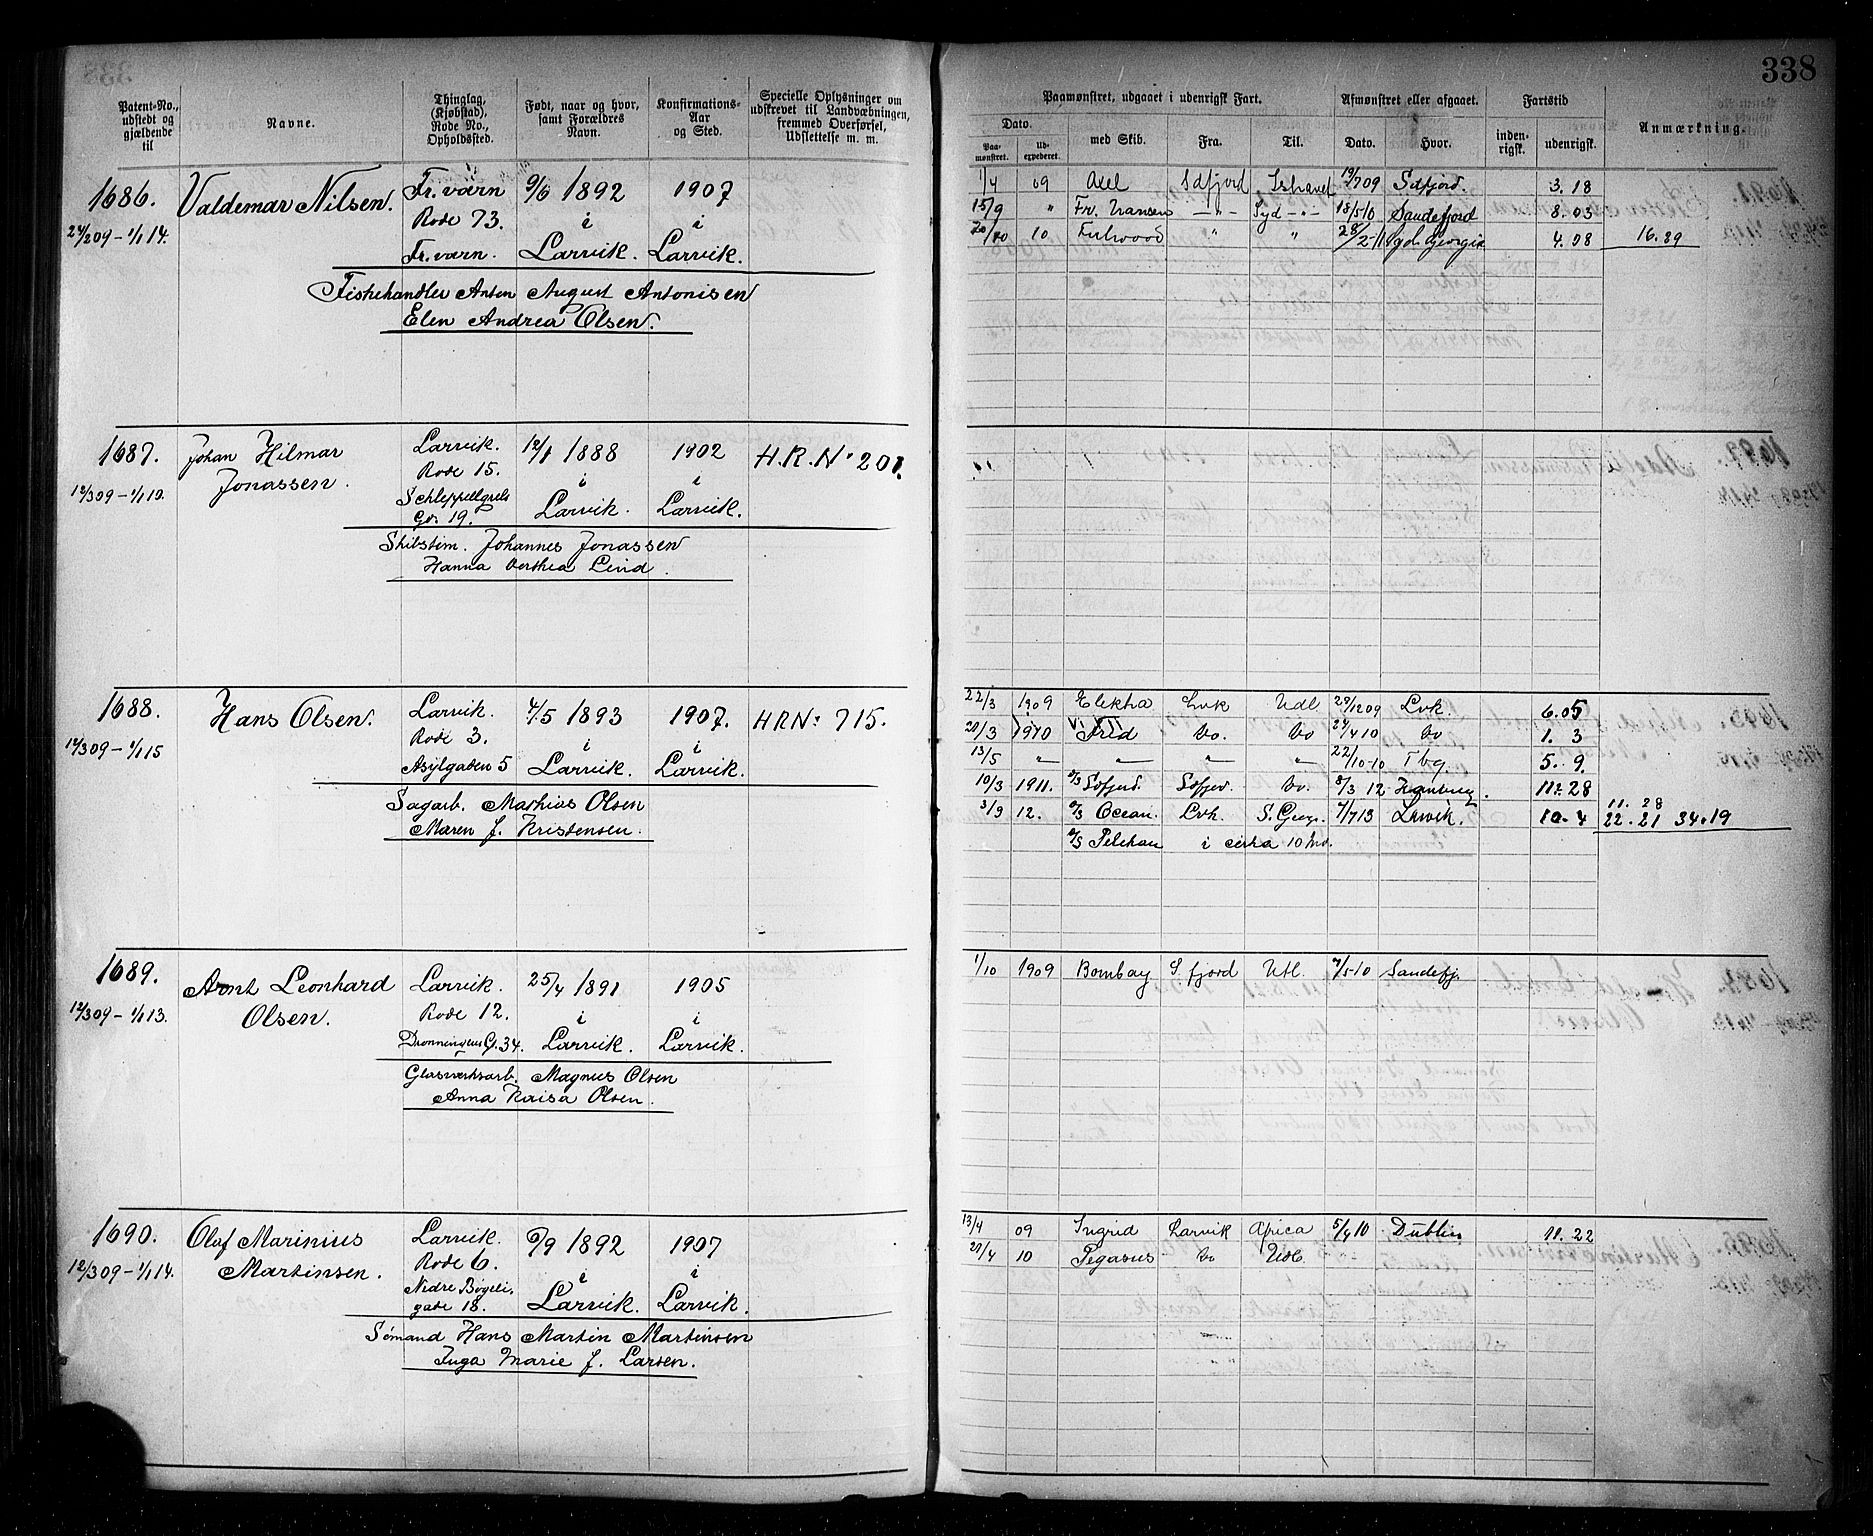 338
Patent-No., udstedt og gjældende til
Navne.
Thinglag, (Kjøbstad), Rode No., Opholdssted.
Født, naar og hvor, samt Forældres Navn.
Konfirmations-Aar og Sted.
Specielle Oplysninger om udskrevet til Landvæbningen, fremmed Overførsel, Udslettelse m. m.
Paamønstret, udgaaet i udenrigsk Fart.
Afmønstret eller afgaaet.
Fartstid
Anmærkning.
Dato.
Paa-mønstret.
Ud-expederet.
med Skib.
Fra.
Til.
Dato.
Hvor.
inden-rigsk.
udenrigsk.
1686. Valdemar Nilsen. Fr.værn 9/6 1892 1907
24/209 – 1/1 14. Rode 73. i i
Fr.værn. Larvik. Larvik.
Fiskehandler Anton August Antonisen
Elen Andrea Olsen.
1/4 09 Axel Sdfjord Ishavet 19/709 Sdfjord. 3.18
15/9 " Fr. Nansen —"— Syd —"— 18/510 Sandefjord 8.03
10 Fulwood " " 28/2-11 Syd Georgia 4.08 16.29
1687. Johan Hilmar Larvik. 12/1 1888 1902 H.R.N. 201.
12/309 – 1/1 10. Jonassen. Rode 15. i i
Schleppellgrels Gd. 19. Larvik. Larvik.
Skibstøm. Johannes Jonassen
Hanna Berthea Lind.
1688. Hans Olsen. Larvik. 4/5 1893 1907. HRN: 715.
12/309 – 1/1 15 Rode 3. i i
Asylgaden 5 Larvik. Larvik.
Sagarb. Mathias Olsen
Maren f. Kristensen.
22/3 1909 Elektra Lvk Udl 29/1209 Lvk. 6.05
20/3 1910 Frid Do. Do 24/410 Do 1. 3
13/5 " — — " 22/10-10 Tbg. 5. 9.
10/3 1911. Sdfjord. Sdfjord. Do. 8/3 12 Hamburg. 11. 28
3/9 12. Ocean. Lvk. S. Georg. 7/713 Larvik. 10. 4 11. 28
22. 21 34.19
Pelikan i cirka 10 Md.
1689. Arnt Leonhard Larvik. 25/4 1891 1905
12/309 – 1/1 13. Olsen. Rode 12. i i
Dronningens G. 34. Larvik. Larvik.
Glasværksarb. Magnus Olsen
Anna Kaisa Olsen.
1/10 1909 Bombay S.fjord Utl. 7/5-10 Sandefj.
1690. Olaf Marinius Larvik. 9/9 1892 1907
12/309 – 1/1 14. Martinsen. Rode 6. i i
Nedre Bøgeli. gade 18. Larvik. Larvik.
Sømand Hans Martin Martinsen
Inga Marie f. Larsen.
13/4 09 Ingrid Larvik Africa 5/4 10 Dublin 11. 22
27/4 10 Pegasus Do Udl.